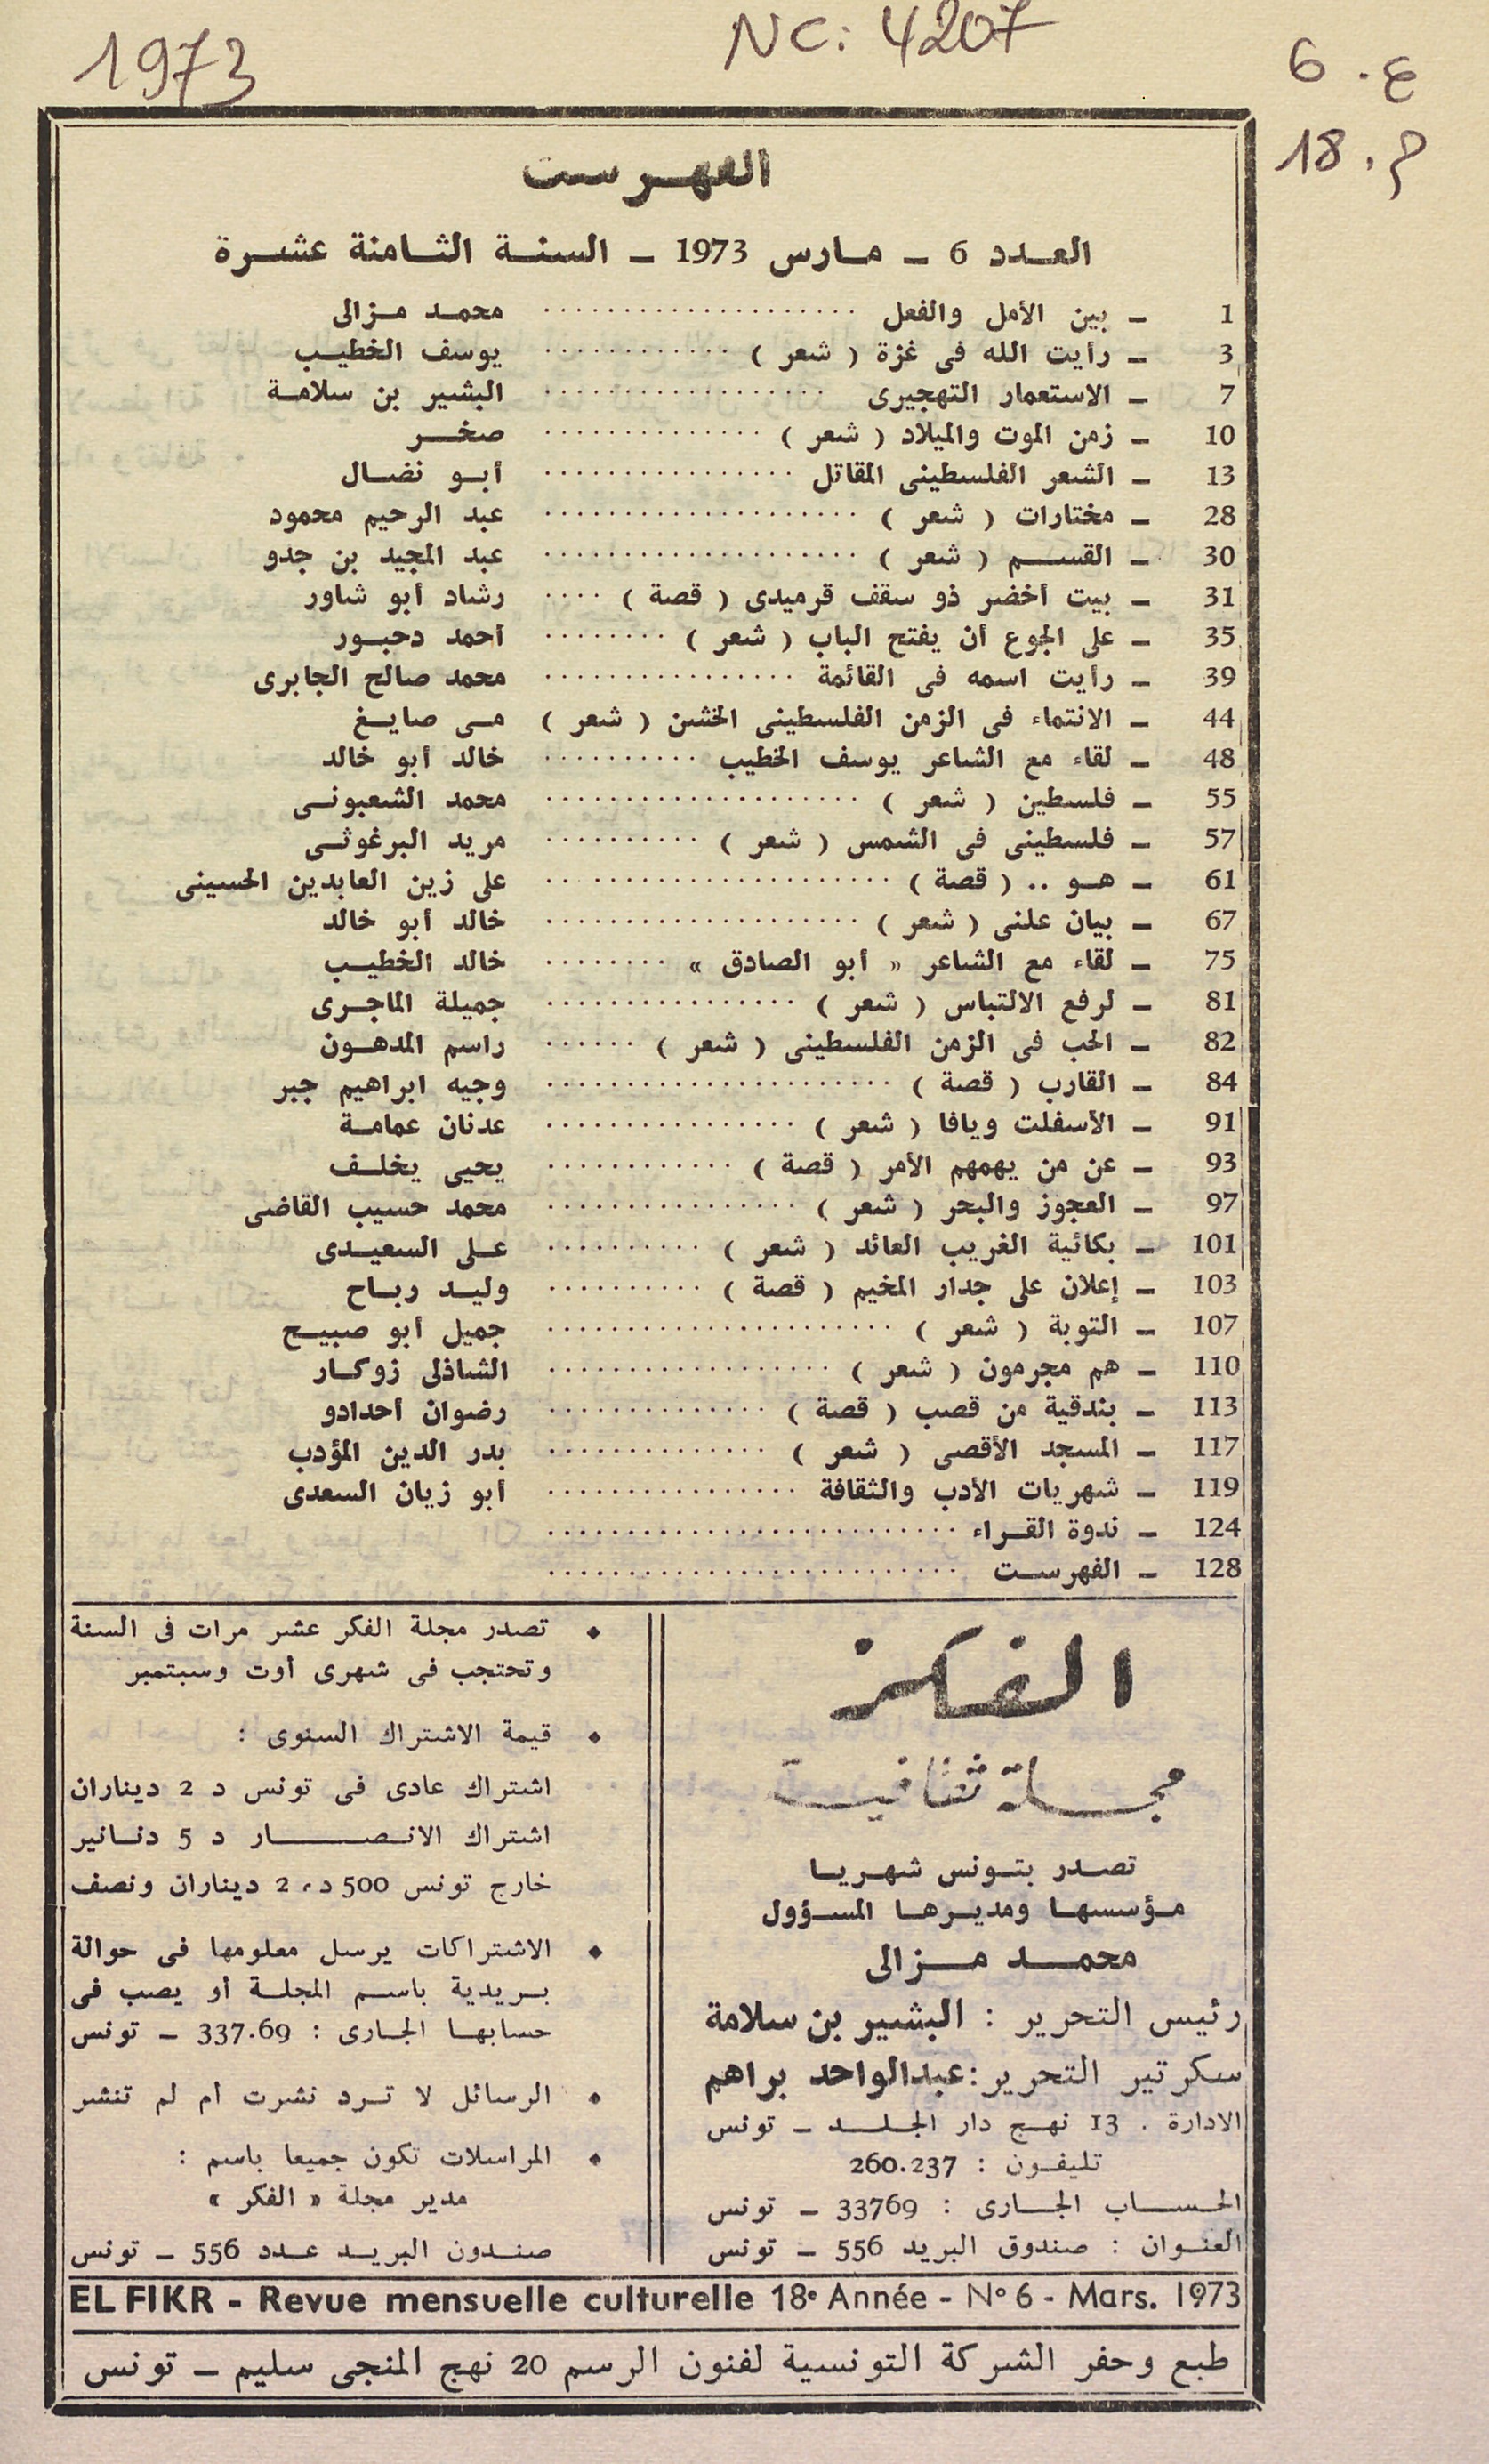 1973
NC: 4207
ع . 6
م . 18
الفهرست
العدد 6 ــ مارس 1973 ــ السنة الثامنة عشرة
1 ــ بين الأمل والفعل .................... محمد مزالى
3 ــ رأيت الله فى غزة ( شعر ) ............ يوسف الخطيب
7 ــ الاستعمار التهجيرى .................. البشير بن سلامة
10 ــ زمن الموت والميلاد ( شعر ) .............. صخر
13 ــ الشعر الفلسطينى المقاتل ................ أبو نضال
28 ــ مختارات ( شعر ) .................... عبد الرحيم محمود
30 ــ القسم ( شعر ) .................... عبد المجيد بن جدو
31 ــ بيت أخضر ذو سقف قرميدى ( قصة ) .... رشاد أبو شاور
35 ــ على الجوع أن يفتح الباب ( شعر ) ........ أحمد دحبور
39 ــ رأيت اسمه فى القائمة ................ محمد صالح الجابرى
44 ــ الانتماء فى الزمن الفلسطينى الخشن ( شعر ) مى صايغ
48 ــ لقاء مع الشاعر يوسف الخطيب .......... خالد أبو خالد
55 ــ فلسطين ( شعر ) .................... محمد الشعبونى
57 ــ فلسطينى فى الشمس ( شعر ) .......... مريد البرغوثى
61 ــ هو .. ( قصة ) ...................... على زين العابدين الحسينى
67 ــ بيان علنى ( شعر ) .................... خالد أبو خالد
75 ــ لقاء مع الشاعر « أبو الصادق » ........ خالد الخطيب
81 ــ لرفع الالتباس ( شعر ) ................ جميلة الماجرى
82 ــ الحب فى الزمن الفلسطينى ( شعر ) ...... راسم المدهون
84 ــ القارب ( قصة ) ...................... وجيه ابراهيم جبر
91 ــ الأسفلت ويافا ( شعر ) ................ عدنان عمامة
93 ــ عن من يهمهم الأمر ( قصة ) ............ يحيى يخلف
97 ــ العجوز والبحر ( شعر ) ................ محمد حسيب القاضى
101 ــ بكائية الغريب العائد ( شعر ) .......... على السعيدى
103 ــ إعلان على جدار المخيم ( قصة ) .......... وليد رباح
107 ــ التوبة ( شعر ) ...................... جميل أبو صبيح
110 ــ هم مجرمون ( شعر ) .................. الشاذلى زوكار
113 ــ بندقية من قصب ( قصة ) .............. رضوان أحدادو
117 ــ المسجد الأقصى ( شعر ) .............. بدر الدين المؤدب
119 ــ شهريات الأدب والثقافة ................ أبو زيان السعدى
124 ــ ندوة القراء ..........................
128 ــ الفهرست ..........................
الفكر
مجلة ثقافية
تصدر بتونس شهريا
مؤسسها ومديرها المسؤول
محمد مزالى
رئيس التحرير : البشير بن سلامة
سكرتير التحرير : عبدالواحد براهم
الادارة . 13 نهج دار الجلد ــ تونس
تليفون : 260.237
الحساب الجارى : 33769 ــ تونس
العنوان : صندوق البريد 556 ــ تونس
♦ تصدر مجلة الفكر عشر مرات فى السنة
وتحتجب فى شهرى أوت وسبتمبر
♦ قيمة الاشتراك السنوى :
اشتراك عادى فى تونس د 2 ديناران
اشتراك الانصار د 5 دنانير
خارج تونس 500 د، 2 ديناران ونصف
♦ الاشتراكات يرسل معلومها فى حوالة
بريدية باسم المجلة أو يصب فى
حسابها الجارى : 337.69 ــ تونس
♦ الرسائل لا ترد نشرت أم لم تنشر
♦ المراسلات تكون جميعا باسم :
مدير مجلة « الفكر »
صندون البريد عدد 556 ــ تونس
EL FIKR - Revue mensuelle culturelle 18e Année - N° 6 - Mars. 1973
طبع وحفر الشركة التونسية لفنون الرسم 20 نهج المنجى سليم ــ تونس